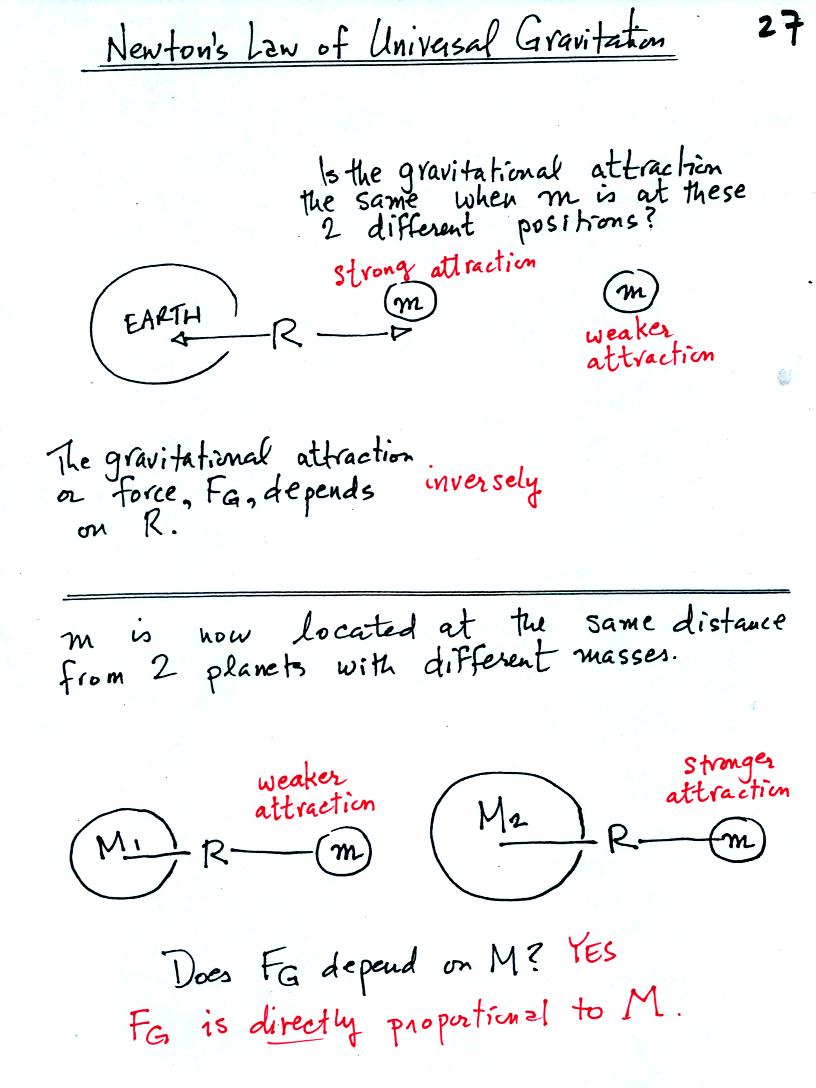 27
Newton's Law of Universal Gravitation
Is the gravitational attraction
the same when m is at these
2 different positions?
strong attraction
m
m
EARTH
R
weaker
attraction
The gravitational attraction
or force, FG, depends inversely
on R.
m is now located at the same distance
from 2 planets with different masses.
weaker
attraction
stronger
attraction
M1
R
m
M2
R
m
Does FG depend on M? YES
FG is directly proportional to M.